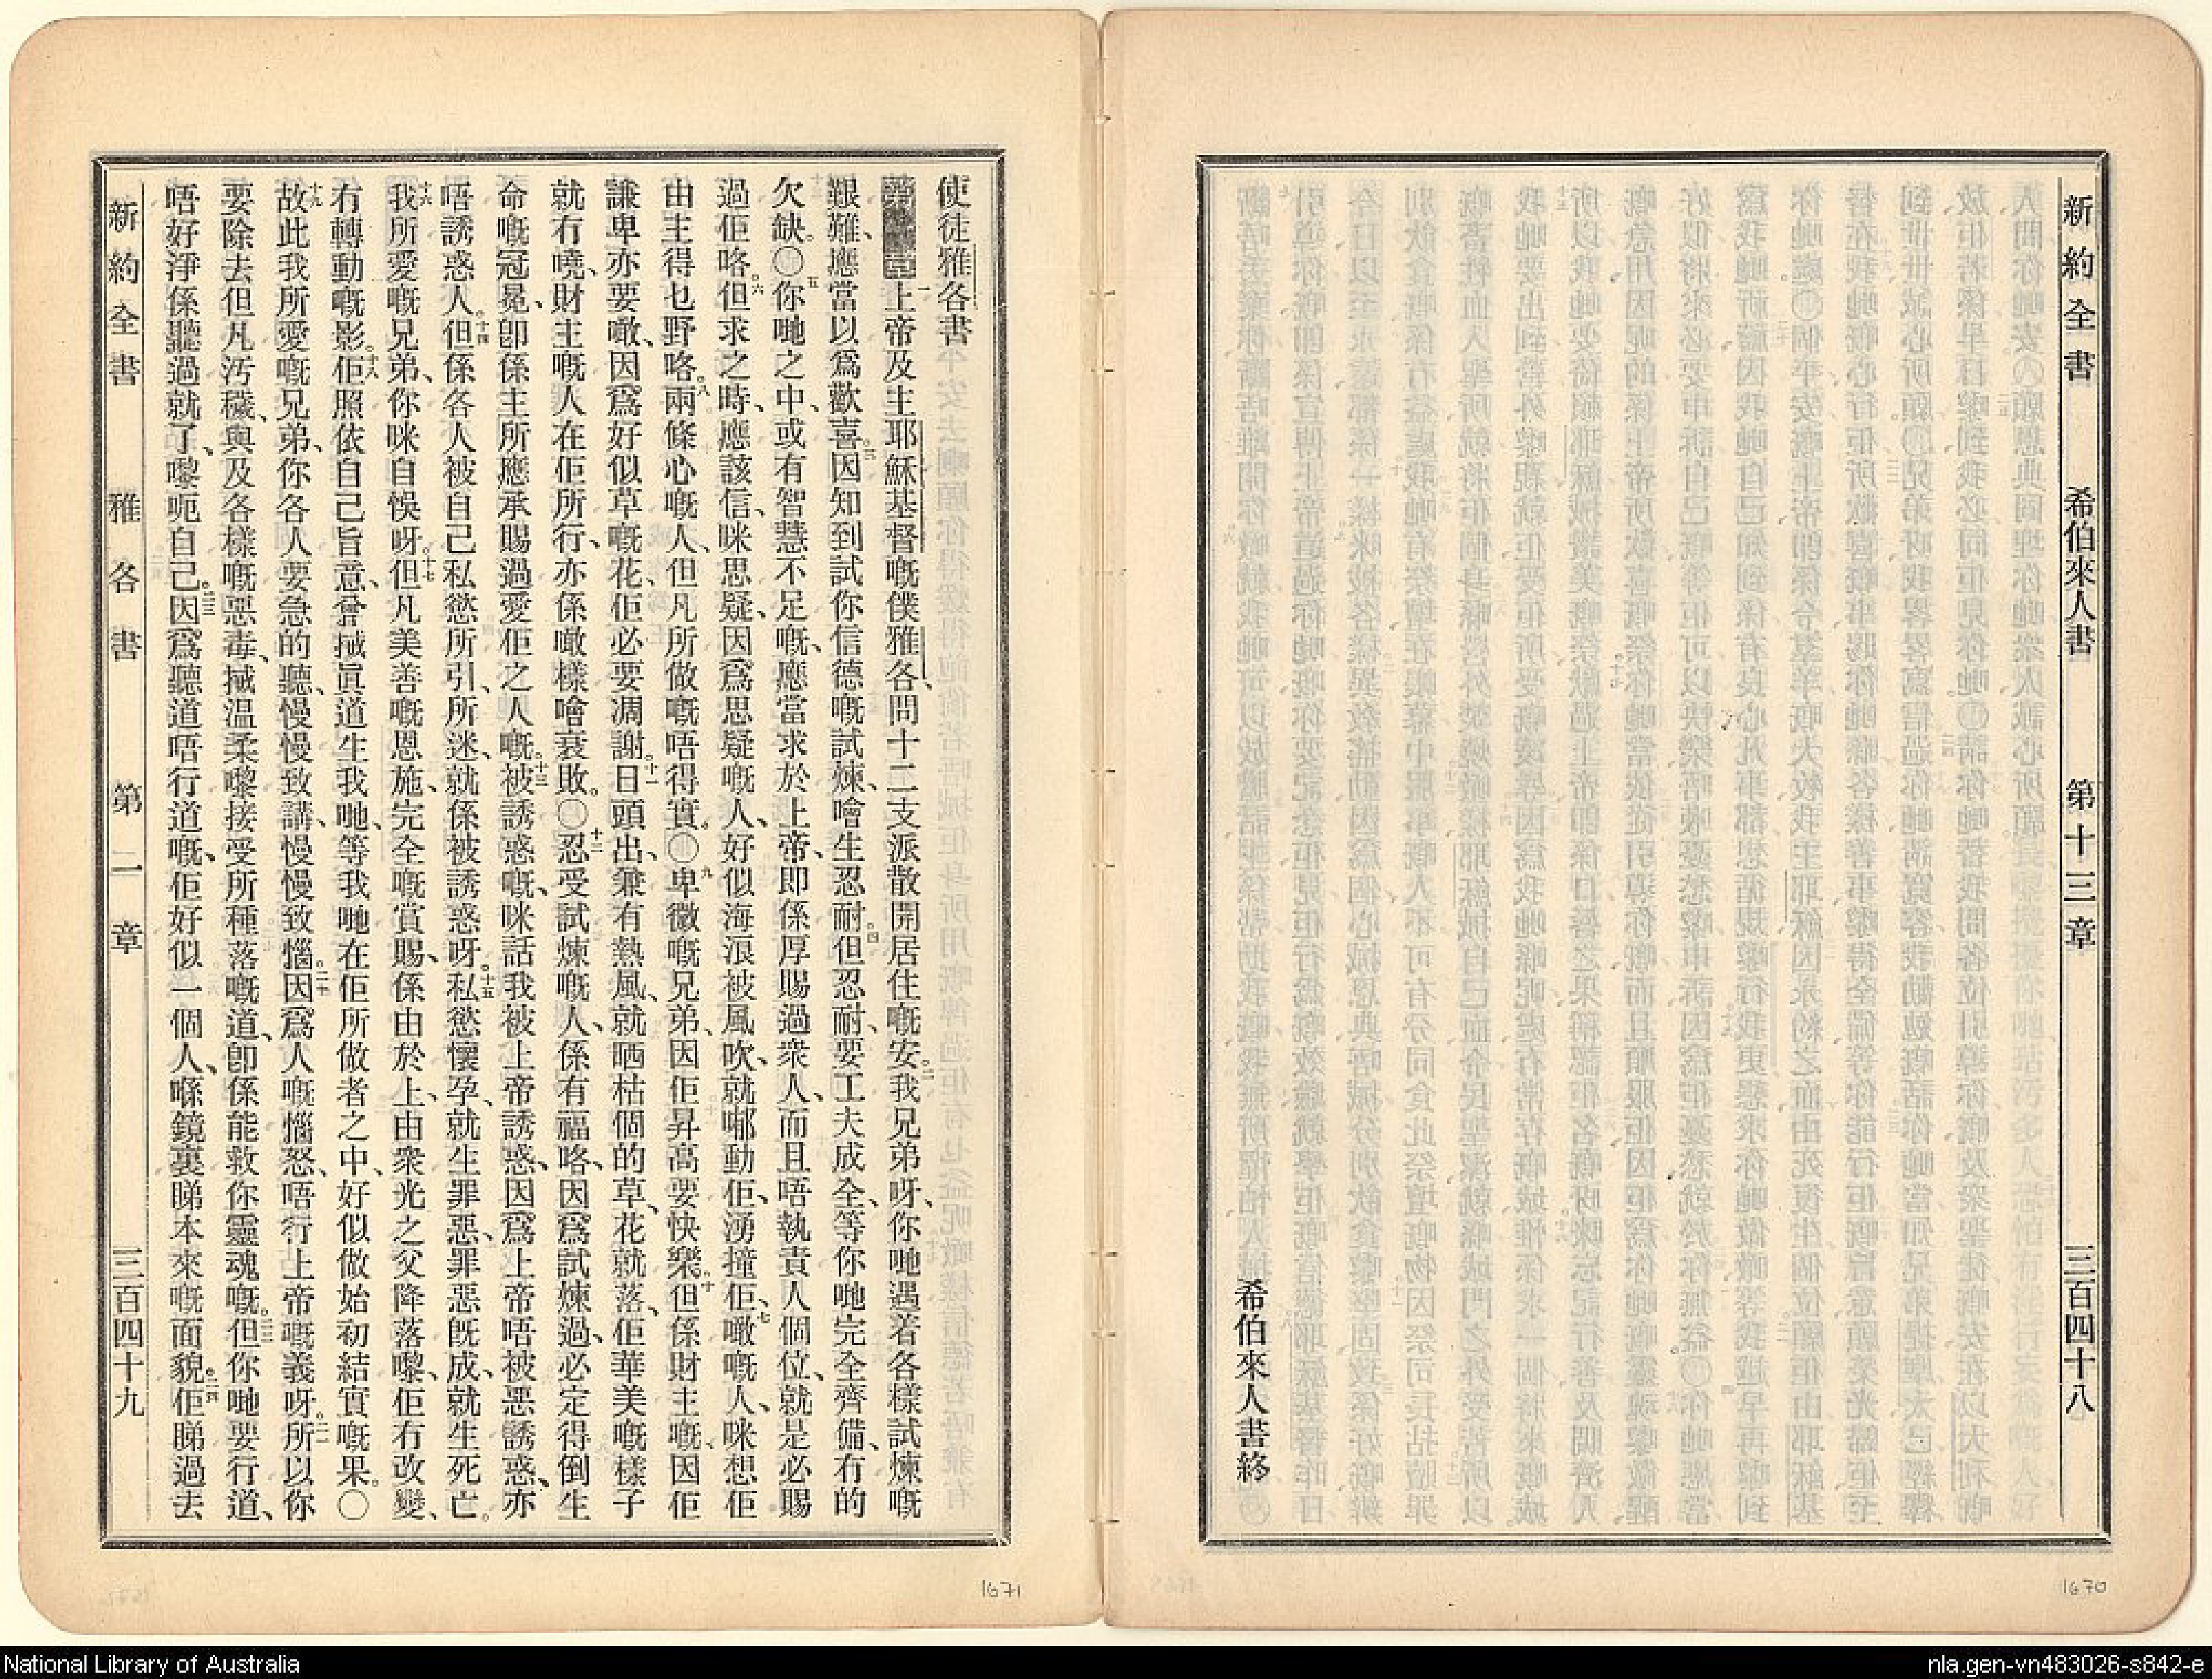 新約全書 希伯來人書 第十三章 三百四十八
希伯來人書終
1670
使徒雅各書
第一章 一上帝及主耶穌基督嘅僕雅各、問十二支派散開居住嘅安。二我兄弟呀、你哋遇着各樣試煉嘅
艱難、應當以爲歡喜。三因知到試你信德嘅試煉、噲生忍耐。四但忍耐、要工夫成全、等你哋完全齊備、有的
欠缺。〇五你哋之中、或有智慧不足嘅、應當求於上帝、即係厚賜過衆人、而且唔執責人個位、就是必賜
過佢咯。六但求之時、應該信、咪思疑、因爲思疑嘅人、好似海浪被風吹、就郁動佢、湧撞佢、七噉嘅人、咪想佢
由主得乜野咯。八兩條心嘅人、但凡所做嘅唔得實。〇九卑微嘅兄弟、因佢昇高要快樂。十但係財主嘅、因佢
謙卑亦要噉、因爲好似草嘅花、佢必要凋謝。十一日頭出、兼有熱風、就晒枯個的草、花就落、佢華美嘅樣子
就冇曉、財主嘅人在佢所行、亦係噉樣噲衰敗。〇十二忍受試煉嘅人、係有福咯、因爲試煉過、必定得倒生
命嘅冠冕、卽係主所應承賜過愛佢之人嘅。十三被誘惑嘅、咪話我被上帝誘惑、因爲上帝唔被惡誘惑、亦
唔誘惑人。十四但係各人被自己私慾所引、所迷、就係被誘惑呀。十五私慾懷孕、就生罪惡、罪惡旣成、就生死亡。
十六我所愛嘅兄弟、你咪自悞呀。十七但凡美善嘅恩施、完全嘅賞賜、係由於上、由衆光之父降落嚟、佢冇改變、
冇轉動嘅影。十八佢照依自己旨意、曾搣眞道生我哋、等我哋在佢所做者之中、好似做始初結實嘅果。〇
十九故此我所愛嘅兄弟、你各人要急的聽、慢慢致講、慢慢致惱。二十因爲人嘅惱怒、唔行上帝嘅義呀。二一所以你
要除去但凡汚穢、與及各樣嘅惡毒、搣温柔嚟接受所種落嘅道、卽係能救你靈魂嘅。二二但你哋要行道、
唔好淨係聽過就了、嚟呃自己。二三因爲聽道唔行道嘅、佢好似一個人、喺鏡裏睇本來嘅面貌。二四佢睇過去
新約全書 雅各書 第一章 三百四十九
1671
National Library of Australia
nla.gen-vn483026-s842-e